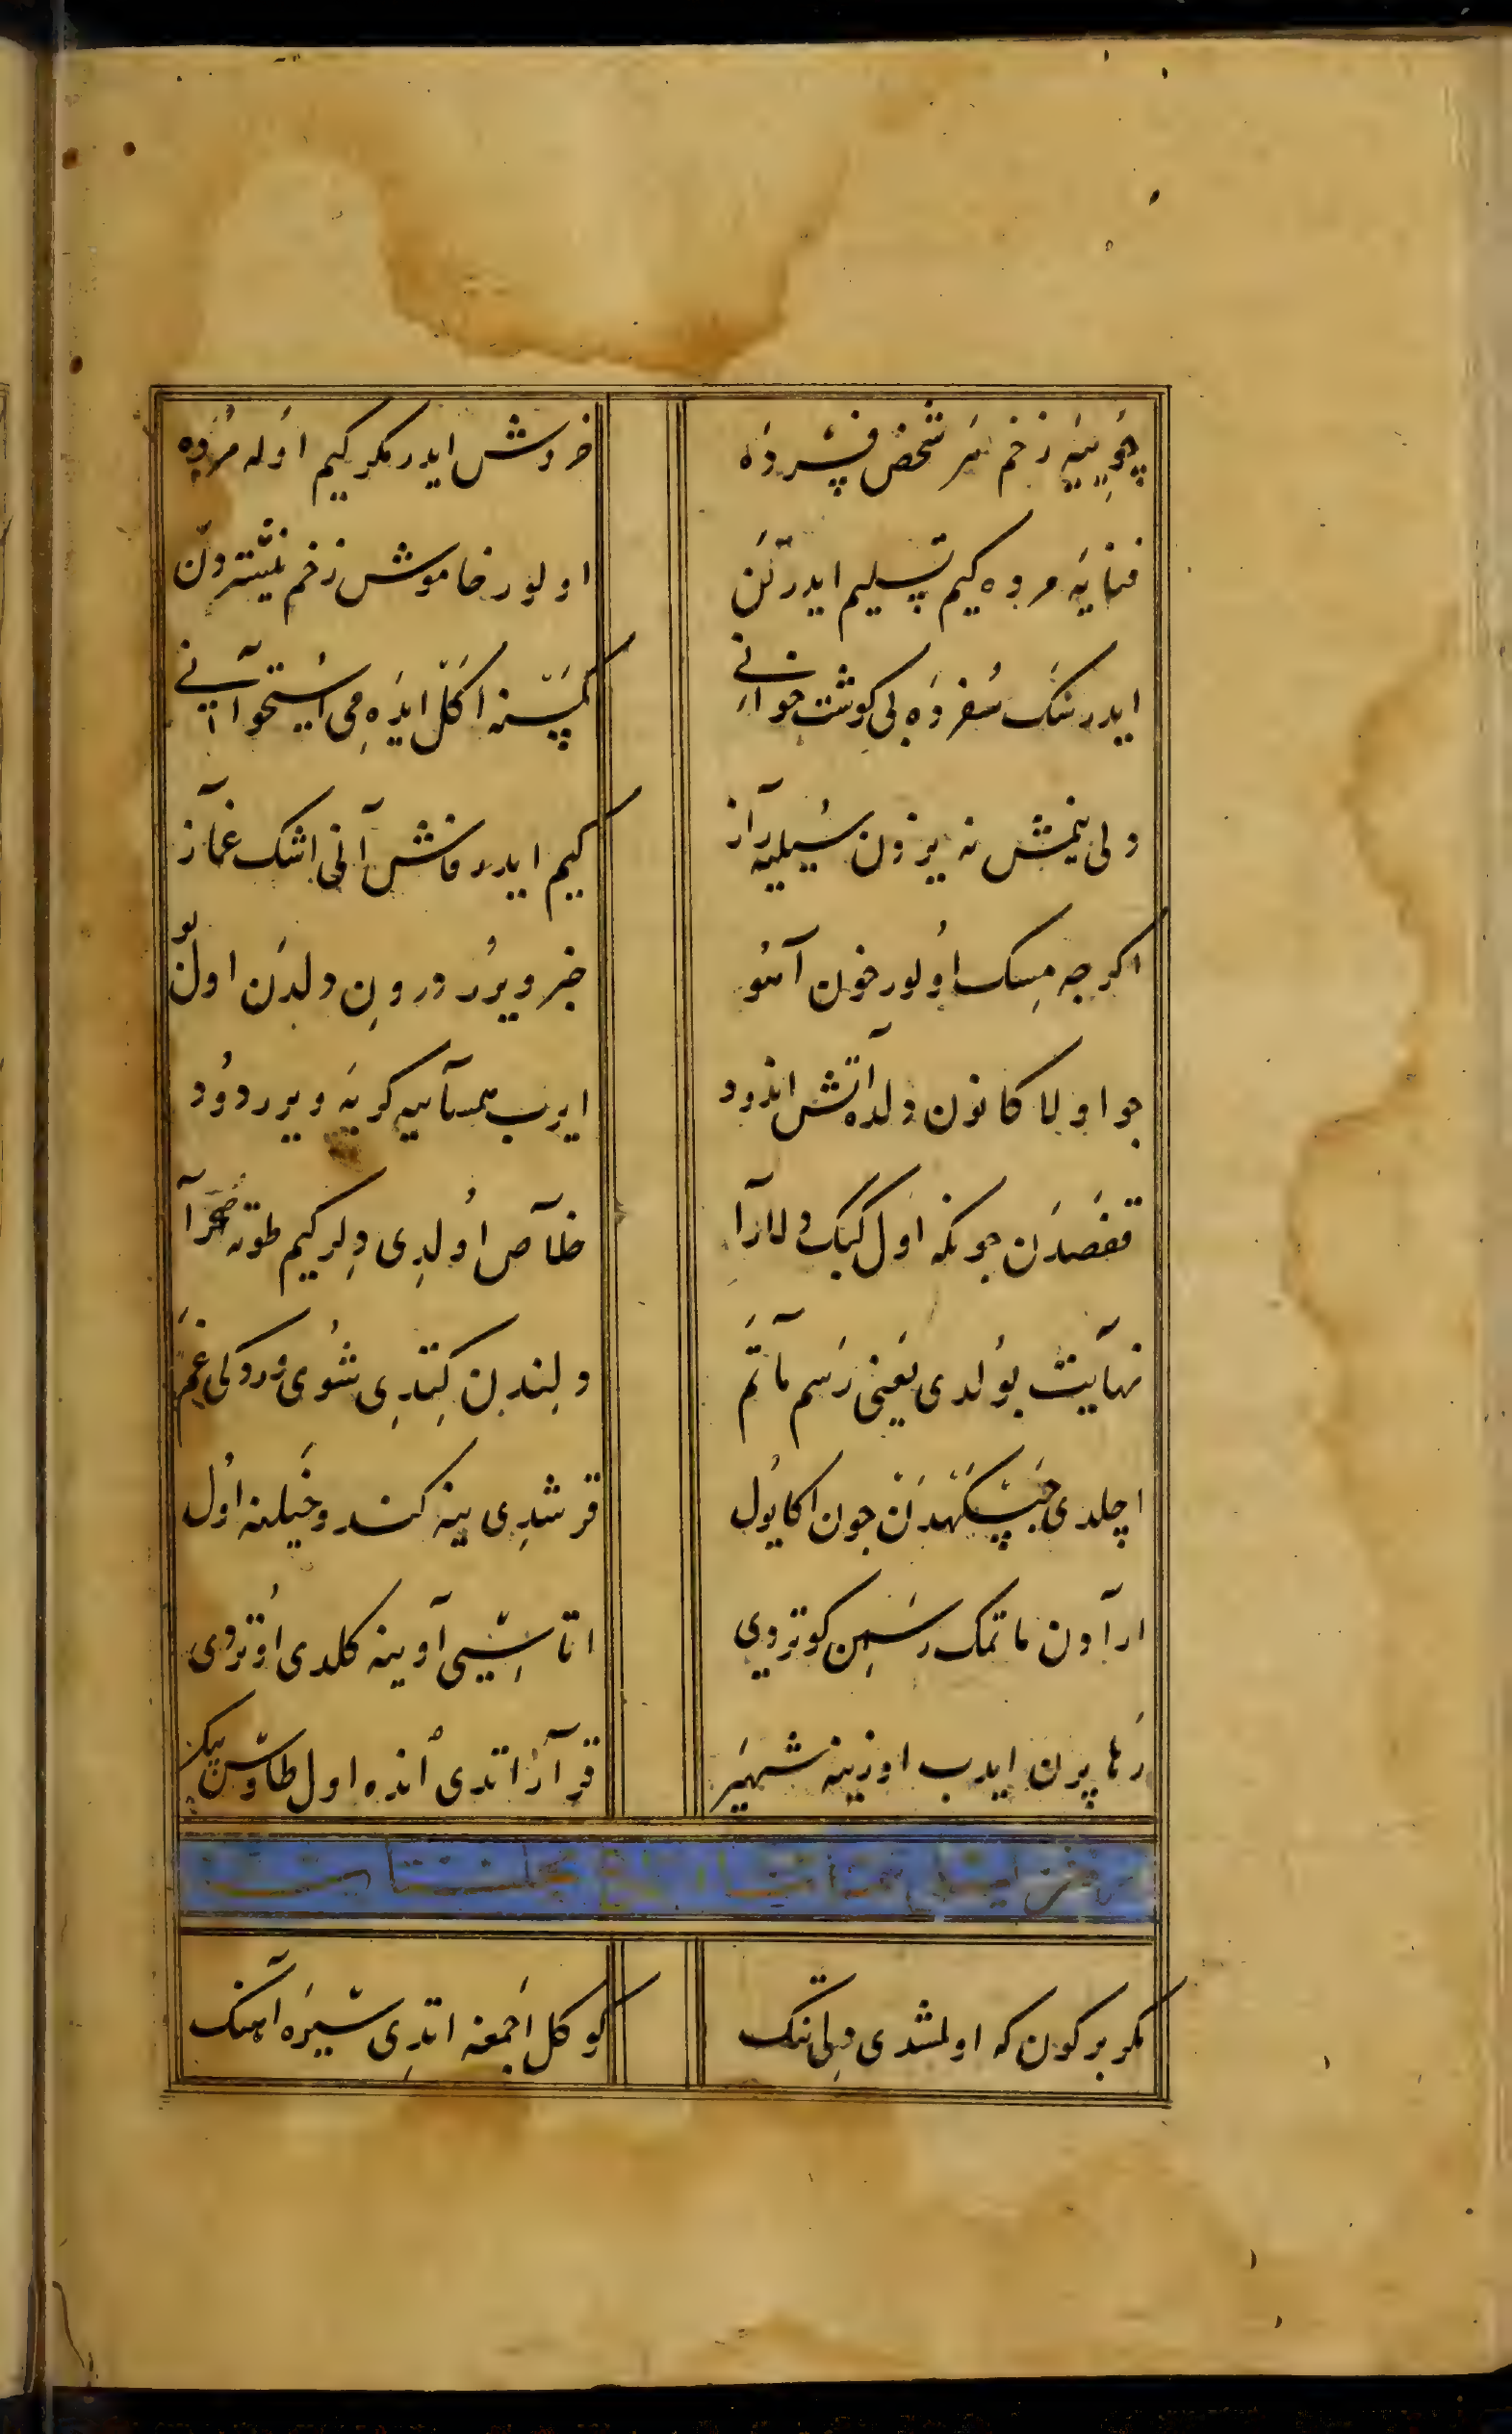 چو ییه زخم هر شخص فسرده
خروش ایدر مکر کیم اوله مرده
فنایه مرده کیم تسلیم ایدر تن
اولور خاموش زخم نیشتردن
ایدر سک سفره بی کوشت خوانی
کسنه اکل ایده می استخوانی
ولی نیمش نه یزدن سیلیه راز
کیم ایدر فاش آنی اشک غماز
اکرچه مسک اولور خون آهو
خبر ویرر درون دلدن اول بو
چو اولا کانون دلده آتش اندود
ایرب همسایه کربه ویرر دود
قفصدن چونکه اول کبک دلارا
خلاص اولدی دلر کیم طوته صحرا
نهایت بولدی یعنی رسم ماتم
دلندن کتدی شوی ورد کی غم
اچلدی حبسکهدن چون اکا یول
قرشدی ینه کند و خیلنه اول
ارادن ماتمک رسمن کوتردی
اتاسی اوینه کلدی اوتردی
رها پرن ایدب اوزینه شهپر
قرار اتدی انده اول طاوس پیکر
مکر بر کون که اولمشدی دلی تنک
کوکل اچمغه اتدی سیره آهنک